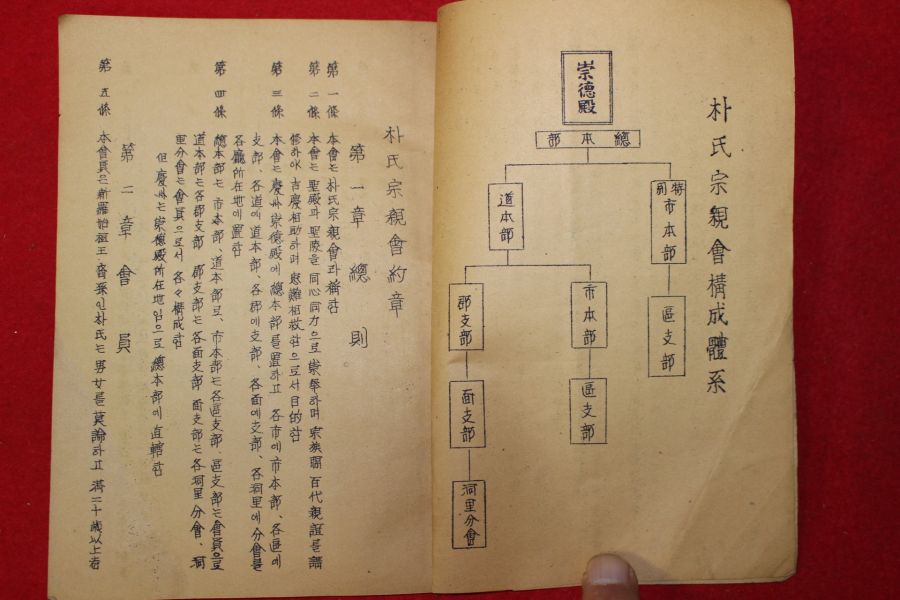 朴氏宗親會構成體系
崇德殿
總本部
特別市本部
區支部
道本部
市本部
區支部
郡支部
面支部
洞里分會
朴氏宗親會約章
第一章 總則
第一條 本會는 朴氏宗親會라 稱함
第二條 本會는 聖殿과 聖陵을 同心同力으로 崇奉하며 宗族間 百代親誼를 講
修하야 吉慶相助하며 患難相救함으로서 目的함
第三條 本會는 慶州 崇德殿에 總本部를 置하고 各市에 市本部、各區에
支部、各道에 道本部、各郡에 支部、各面에 支部、各洞里에 分會를
各廳所在地에 置함
第四條 總本部는 市本部、道本部로、市本部는 各區支部、區支部는 會員으로
道本部는 各郡支部 郡支部는 各面支部 面支部는 各洞里分會、洞
里分會는 會員으로서 各々構成함
但 慶州는 崇德殿所在地임으로 總本部에 直轄함
第二章 會員
第五條 本會員은 新羅始祖王 裔孫인 朴氏는 男女를 莫論하고 滿二十歲以上者